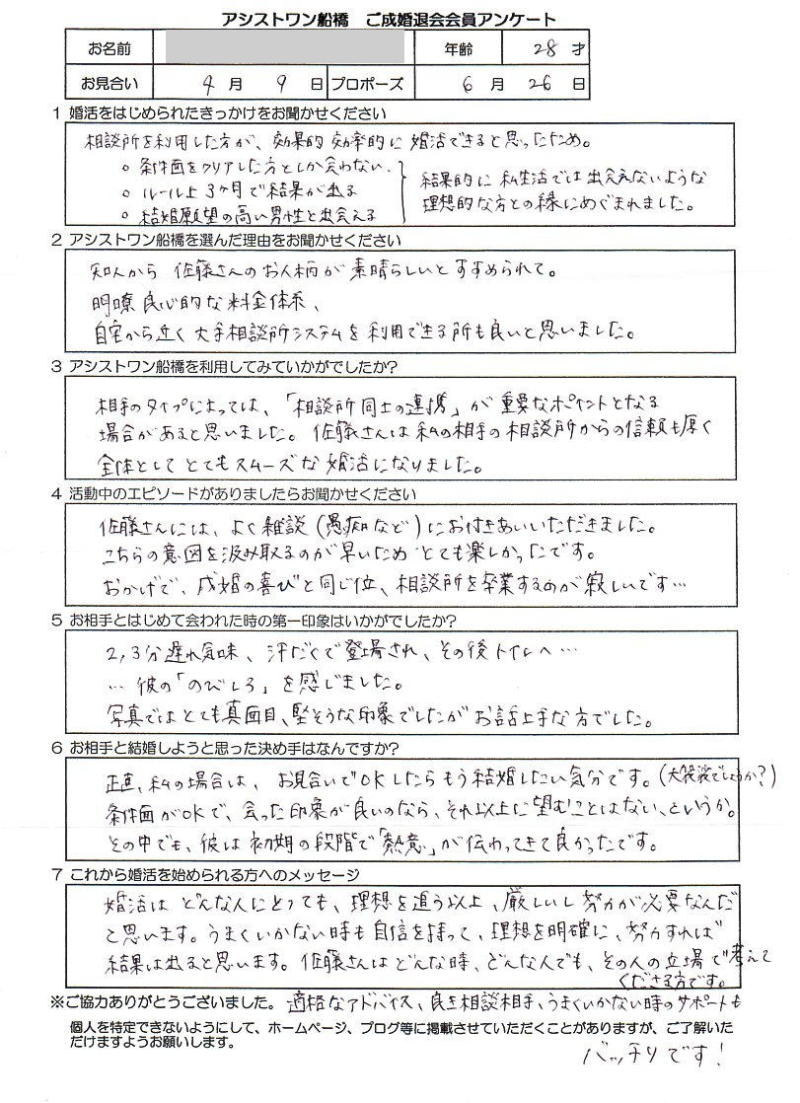 アシストワン船橋　ご成婚退会会員アンケート
お名前　年齢　28 才
お見合い　4 月 9 日　プロポーズ　6 月 26 日
1 婚活をはじめられたきっかけをお聞かせください
相談所を利用した方が、効果的 効率的に 婚活できると思ったため。
○ 条件面をクリアした方としか会わない。
○ ルール上 3ヶ月で結果が出る
○ 結婚願望の高い男性と出会える
結果的に 私生活では 出会えないような
理想的な方との縁にめぐまれました。
2 アシストワン船橋を選んだ理由をお聞かせください
知人から 佐藤さんのお人柄が 素晴らしいと すすめられて。
明瞭 良心的な 料金体系、
自宅から近く 大手相談所システムを 利用できる所も良いと思いました。
3 アシストワン船橋を利用してみていかがでしたか?
相手のタイプによっては、「相談所同士の連携」が 重要なポイントとなる
場合があると思いました。佐藤さんは 私の相手の 相談所からの信頼も厚く
全体として とてもスムーズな 婚活になりました。
4 活動中のエピソードがありましたらお聞かせください
佐藤さんには、よく 雑談 (愚痴など) にお付きあいいただきました。
こちらの意図を汲み取るのが 早いため とても楽しかったです。
おかげで、成婚の喜びと同じ位、相談所を卒業するのが 寂しいです…
5 お相手とはじめて会われた時の第一印象はいかがでしたか?
2,3分 遅れ気味、汗だくで登場され、その後トイレへ…
… 彼の「のびしろ」を感じました。
写真ではとても真面目、堅そうな印象でしたが お話上手な方でした。
6 お相手と結婚しようと思った決め手はなんですか?
正直、私の場合は、お見合いでOKしたらもう結婚したい気分です。(大袈裟でしょうか?)
条件面がOKで、会った印象が良いのなら、それ以上に望むことはない、というか。
その中でも、彼は初期の段階で「熱意」が伝わってきて良かったです。
7 これから婚活を始められる方へのメッセージ
婚活は どんな人にとっても、理想を追う以上、厳しいし 努力が必要なんだ
と思います。うまくいかない時も自信を持って、理想を明確に、努力すれば
結果は出ると思います。佐藤さんは どんな時、どんな人でも、その人の立場で考えて
くださる方です。
※ご協力ありがとうございました。適格なアドバイス、良き相談相手、うまくいかない時のサポートも
個人を特定できないようにして、ホームページ、ブログ等に掲載させていただくことがありますが、ご了解いた
だけますようお願いします。
バッチリです!